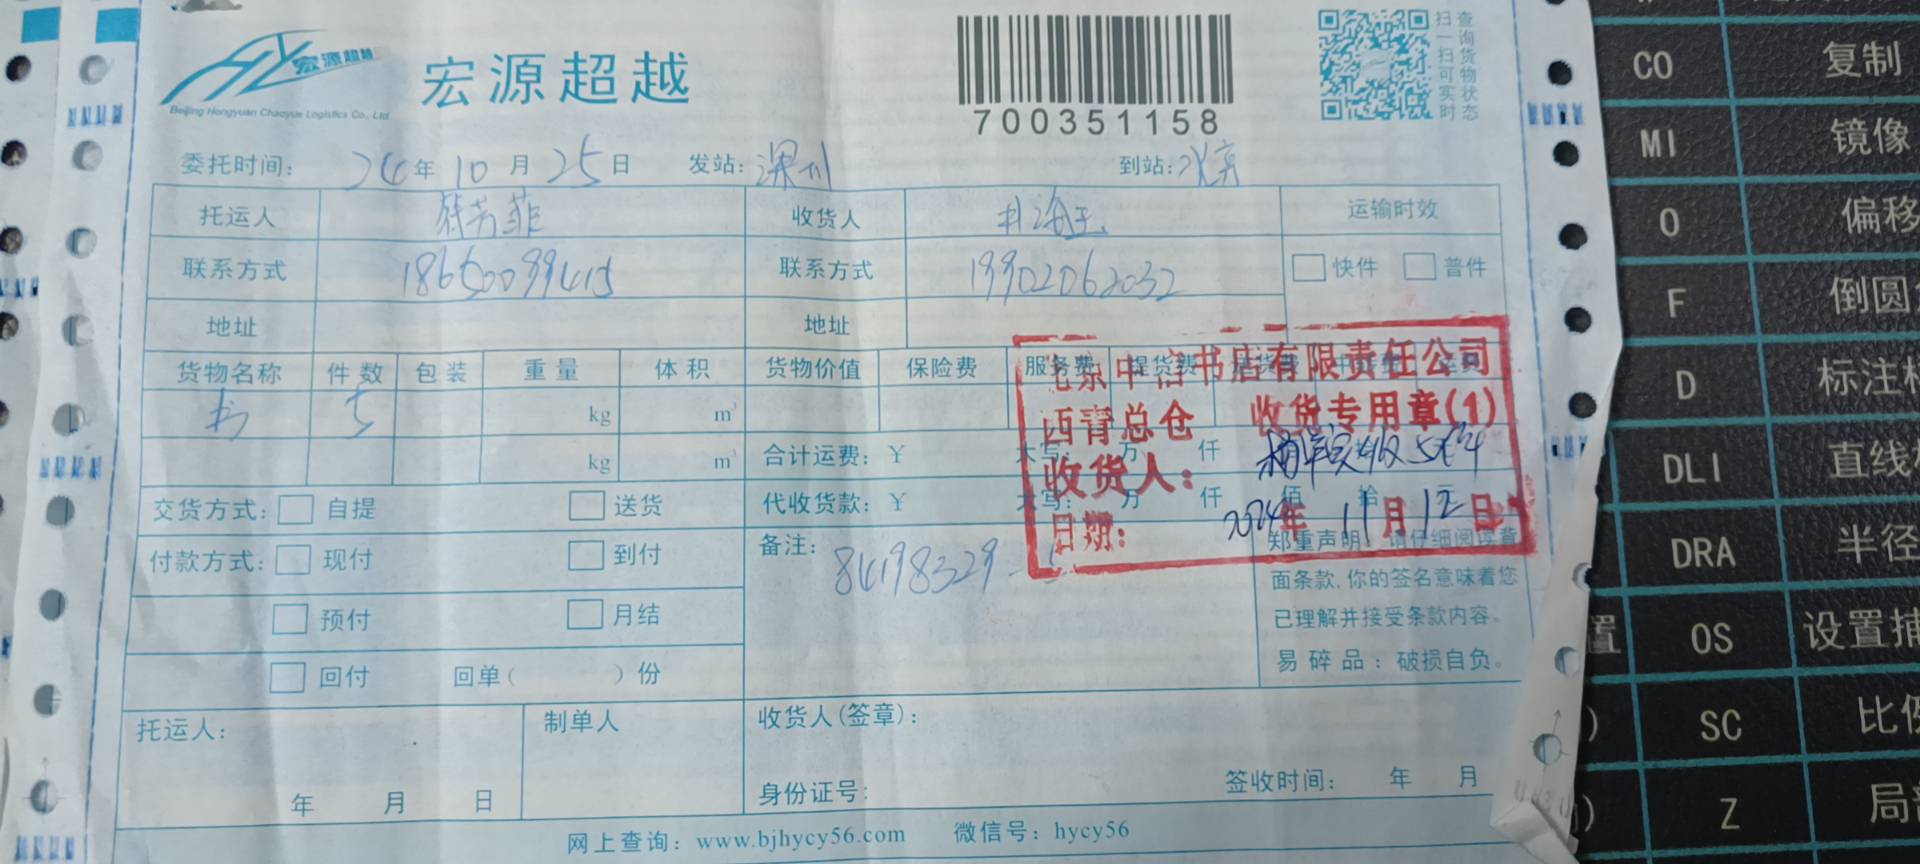 宏源超越
Beijing Hongyuan Chaoyue Logistics Co., Ltd
宏源超越
700351158
扫一扫可实时
查询货物状态
委托时间: 24年10月25日 发站:深圳 到站:北京
托运人 收货人 运输时效
联系方式 18650099415 联系方式 19902062032 快件 普件
地址 地址
货物名称 件数 包装 重量 体积 货物价值 保险费 服务费 提货费
书 5 kg m³
kg m³ 合计运费: ¥ 大写: 万 仟
交货方式: 自提 送货 代收货款: ¥ 大写: 万 仟 佰 拾
付款方式: 现付 到付 备注: 84198329
预付 月结
回付 回单( )份
北京中信书店有限责任公司
西青总仓 收货专用章(1)
收货人:
日期: 2024年11月12日
郑重声明 请仔细阅读背
面条款,你的签名意味着您
已理解并接受条款内容。
易碎品:破损自负。
托运人: 制单人 收货人(签章):
年 月 日 身份证号: 签收时间: 年 月
网上查询: www.bjhycy56.com 微信号: hycy56
CO 复制
MI 镜像
O 偏移
F 倒圆
D 标注
DLI 直线
DRA 半径
置 OS 设置捕
) SC 比例
) Z 局部